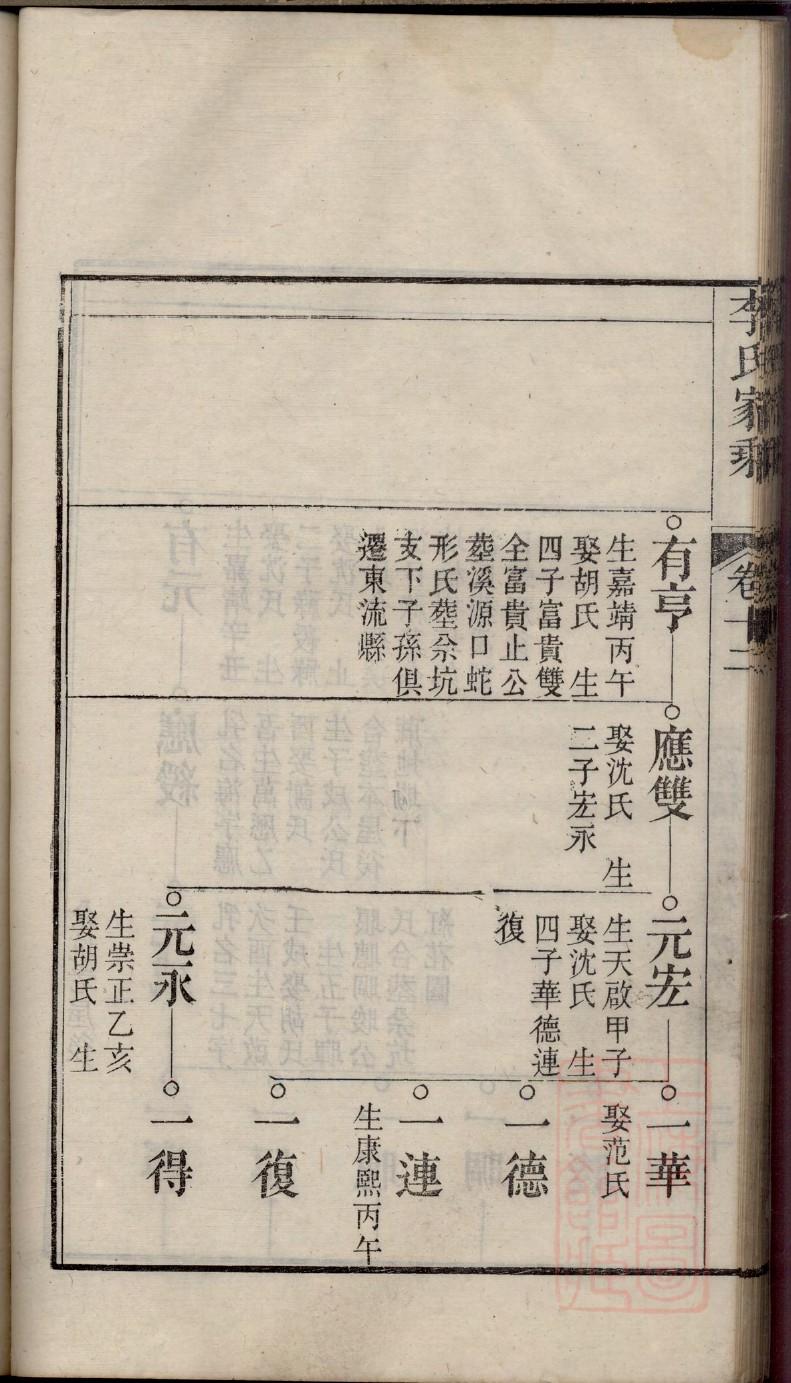 李氏家乘
卷十二
有亨
生嘉靖丙午
娶胡氏 生
四子富貴雙
全富貴止公
塟溪源口蛇
形氏塟佘坑
支下子孫俱
遷東流縣
應雙
娶沈氏 生
二子宏永
元宏
生天啟甲子
娶沈氏 生
四子華德連
復
元永
生崇正乙亥
娶胡氏 生
一華
娶范氏
一德
一連
生康熙丙午
一復
一得